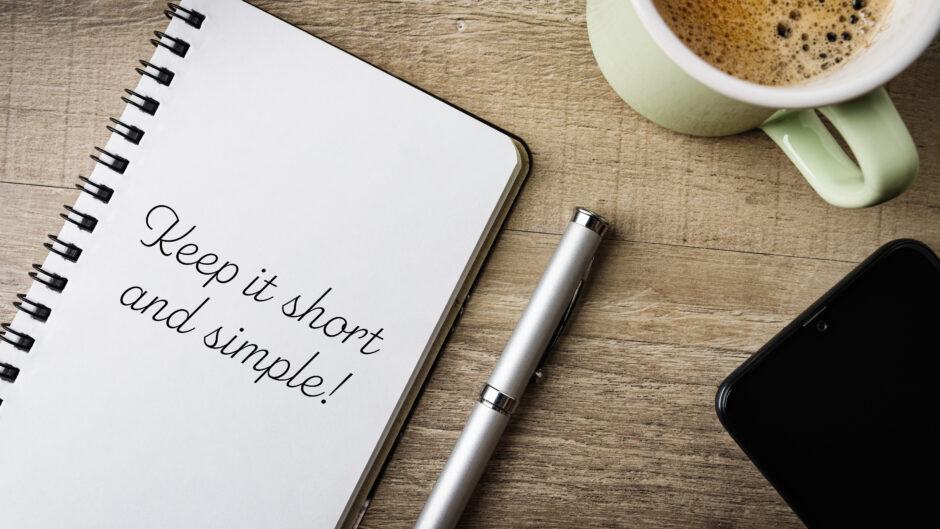 Keep it short
and simple!